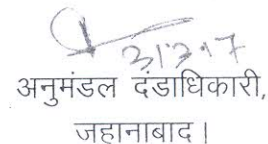 31.7.17
अनुमंडल दंडाधिकारी,
जहानाबाद।